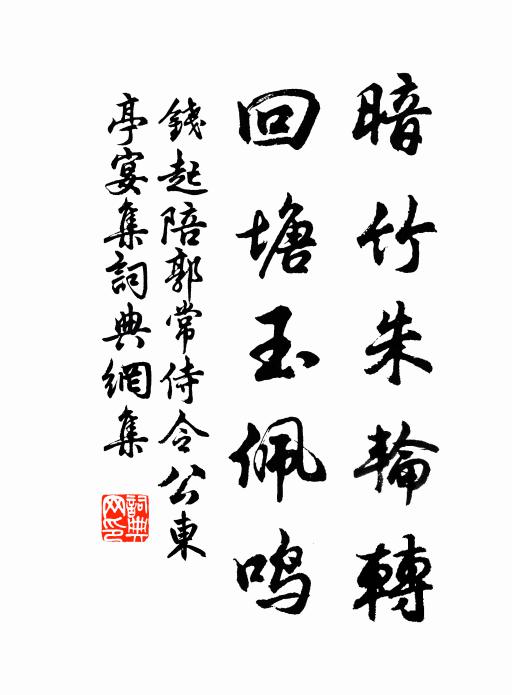 暗竹朱輪轉
回塘玉佩鳴
錢起陪郭常侍令公東
亭宴集詞典網集
詞典
网印